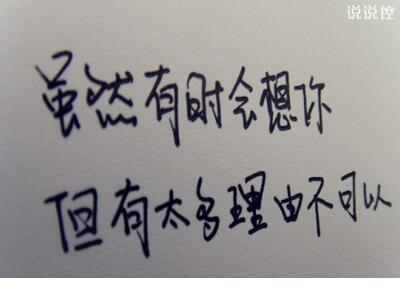 说说控
虽然有时会想你
但有太多理由不可以